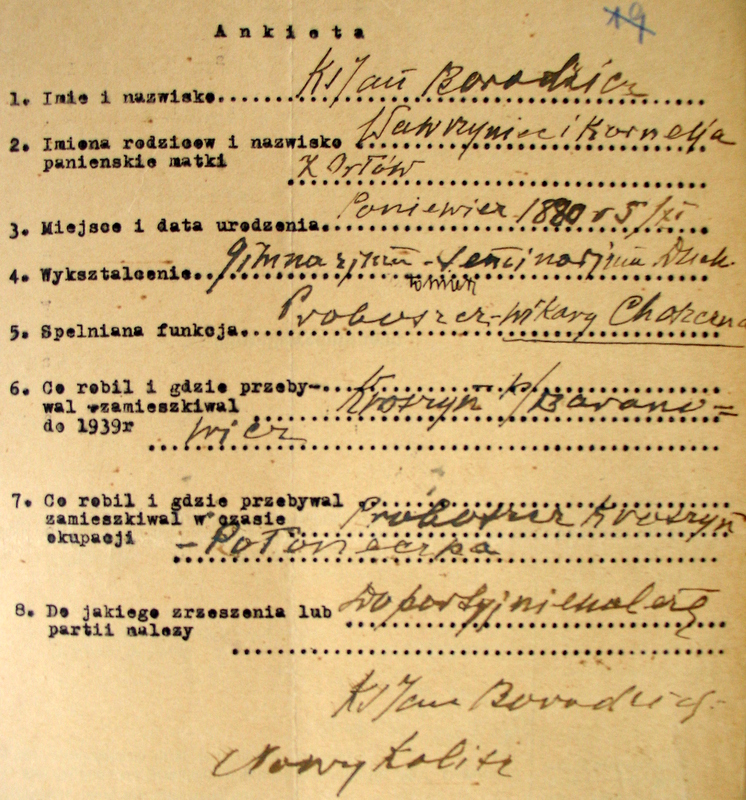 19
Ankieta
1. Imie i nazwisko.......Ks Jan Borodzicz
2. Imiona rodzicow i nazwisko Wawrzyniec i Kornelja
panienskie matki z Orłów
3. Miejsce i data urodzenia. Poniewież 1880 r 5/XI
4. Wyksztalcenie. gimnazjum - Seminarjum Duch.
5. Spelniana funkcja. Proboszcz - wikary Choczena
6. Co robil i gdzie przeby-
wal zamieszkiwal Kroszyn k/Barano=
do 1939r wicz
7. Co robil i gdzie przebywal
zamieszkiwal w czasie Proboszcz Kroszyn
okupacji - Połoneczka
8. Do jakiego zrzeszenia lub Do partyj nie należę
partii nalezy
Ks Jan Borodzicz
Nowy Kalisz